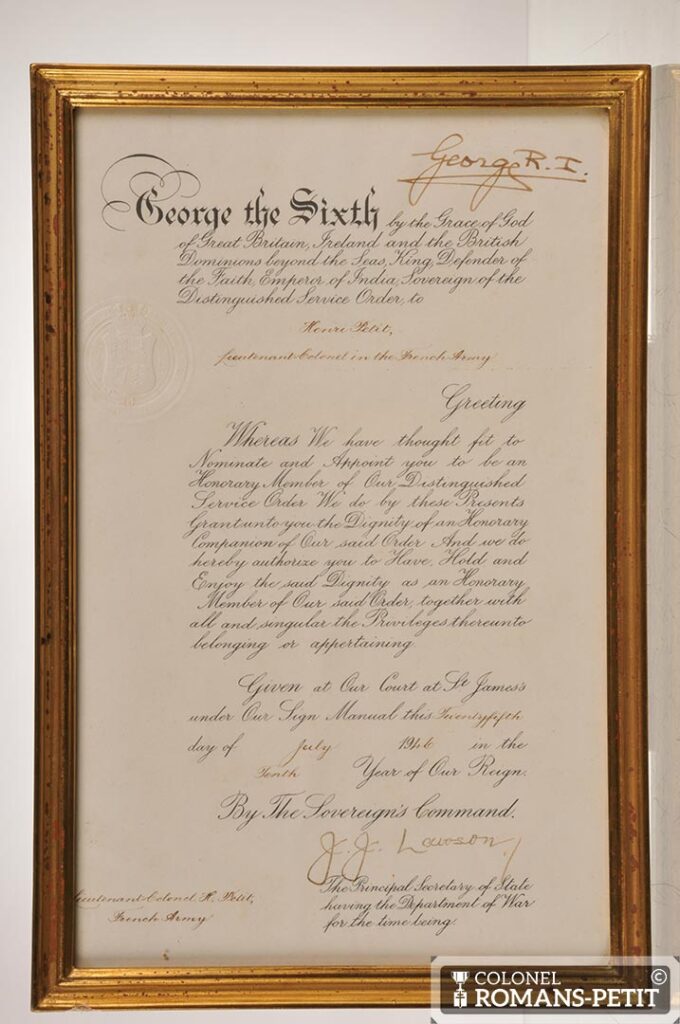 George R. I.
George the Sixth by the Grace of God
of Great Britain, Ireland and the British
Dominions beyond the Seas, King, Defender of
the Faith, Emperor of India, Sovereign of the
Distinguished Service Order, to
Henri Petit,
Lieutenant-Colonel in the French Army
Greeting
Whereas We have thought fit to
Nominate and Appoint you to be an
Honorary Member of Our Distinguished
Service Order We do by these Presents
Grant unto you the Dignity of an Honorary
Companion of Our said Order And we do
hereby authorize you to Have, Hold and
Enjoy the said Dignity as an Honorary
Member of Our said Order, together with
all and singular the Privileges thereunto
belonging or appertaining.
Given at Our Court at St James's
under Our Sign Manual this Twentyfifth
day of July 1946 in the
Tenth Year of Our Reign.
By The Sovereign's Command.
J. J. Lawson
The Principal Secretary of State
having the Department of War
for the time being.
Lieutenant-Colonel H. Petit,
French Army
COLONEL
ROMANS-PETIT
©